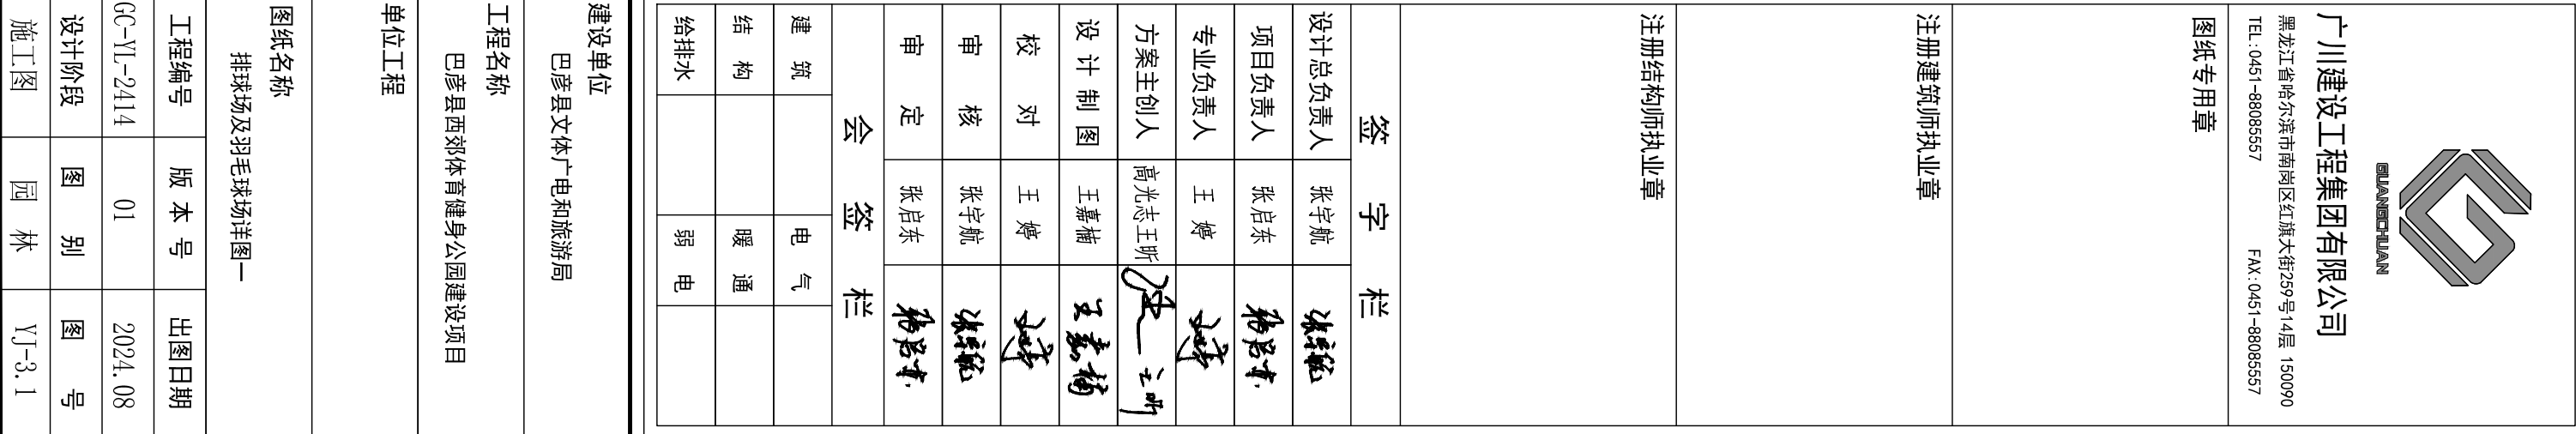 GUANGCHUAN
广川建设工程集团有限公司
黑龙江省哈尔滨市南岗区红旗大街259号14层 150090
TEL:0451-88085557 FAX:0451-88085557
图纸专用章
注册建筑师执业章
注册结构师执业章
签字栏
设计总负责人 张宇航 张宇航
项目负责人 张启东 张启东
专业负责人 王婷 王婷
方案主创人 高光志王昕
设计制图 王嘉楠 王嘉楠
校对 王婷 王婷
审核 张宇航 张宇航
审定 张启东 张启东
会签栏
建筑 电气
结构 暖通
给排水 弱电
建设单位
巴彦县文体广电和旅游局
工程名称
巴彦县西郊体育健身公园建设项目
单位工程
图纸名称
排球场及羽毛球场详图一
工程编号 版本号 出图日期
GC-YL-2414 01 2024.08
设计阶段 图别 图号
施工图 园林 YJ-3.1